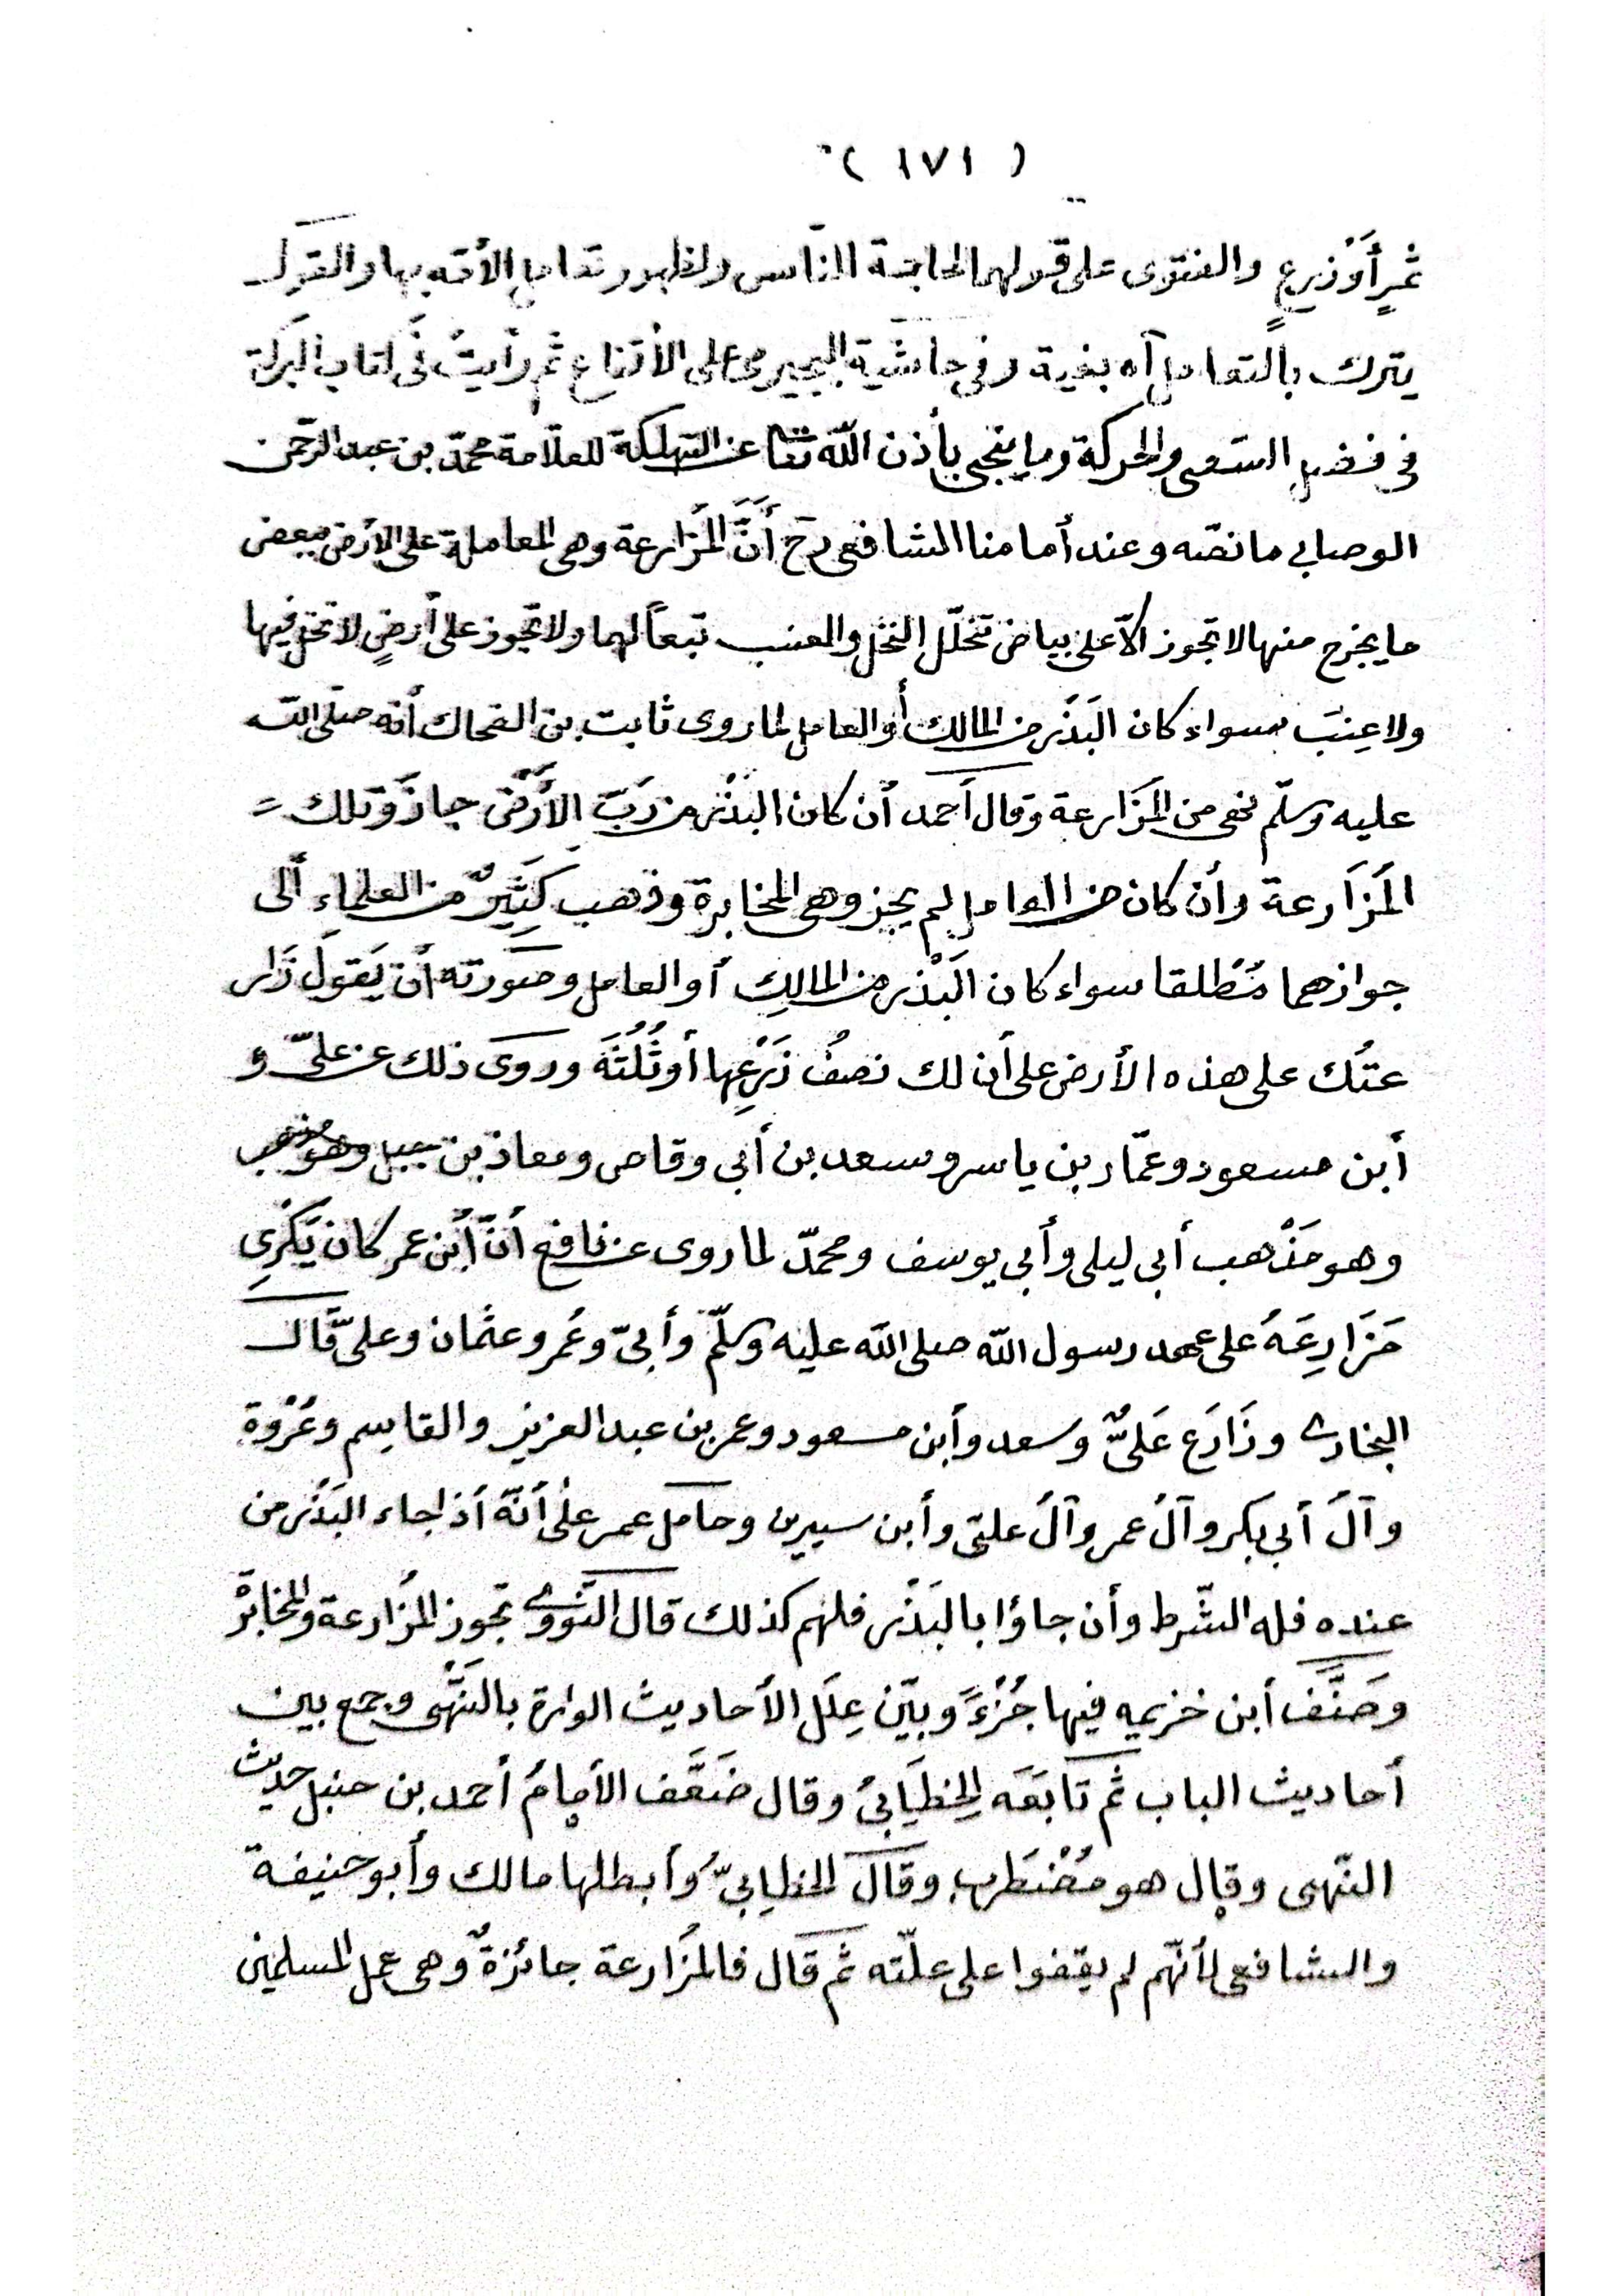 ( ١٧١ )
ثمرٍ أوْ زرعٍ والفتوى على قولهما لحاجة النّاس ولظهور تعامل الأمّة بها والقول
يترك بالتعامل اه بغية وفي حاشية البجيرمى على الأقناع ثم رأيتُ فى كتاب البركة
في فضل السّعى والحركة وما ينجى بأذن اللّه تعا عن التهلكة للعلّامة محمّد بن عبد الرّحمن
الوصابي ما نصّه وعند أمامنا الشافعى رح أَنَّ المُزارعة وهى المعاملة على الأرض ببعض
ما يخرج منها لا تجوز ألّا على بياض تخلّل النّخل والعنب تبعاً لهما ولا تجوز على أرضٍ لا نخل فيها
ولا عِنَبَ سواء كان البَذْر من المالك أو العامل لما روى ثابت بن الضحاك أنه صلّى اللّه
عليه وسلّم نهى عن المزَارعة وقال أحمد أن كان البذْر من رَبّ الأرْض جاز وتلك =
المَزَارعة وأن كان من العامل لم يجز وهى المخابرة وذهب كثِيْرٌ من العلماءِ ألى
جوازهما مُطلقا سواء كان البَذْر من المالِكِ أو العامل وصورته أن يَقولَ زَار
عتُك على هذه الأرض على أن لك نصفُ زَرْعِها أو ثُلُثَهُ وروى ذلك عن علىّ و
أبن مسعود وعمّار بن ياسر وسعد بن أبى وقاص ومعاذ بن جبل وهو مذهب
وهو مَذْهب أبى ليلى وأبى يوسف ومحمّد لما روى عن نافع أنّ أبن عمر كان يَكْرِي
مَزَارِعَهُ على عهد رسول اللّه صلى اللّه عليه وسلّم وأبىّ وعُمر وعثمان وعلىّ قال
البخارى وزَارَع عَلىٌّ وسعد وأبن مسعود وعمر بن عبد العزيز والقاسم وعُرْوة
وآلُ أبى بكر وآلُ عمر وآلُ علىّ وأبن سيرين وعامل عمر على أنّه أذا جاء البَذْر من
عنده فله الشّرط وأن جاؤا بالبَذْر فلهم كذلك قال النّووى تجوز المُزارعة والمخابرة
وصَنَّف أبن خزيمه فيها جُزْءً وبيّن عِلَل الأحاديث الواردة بالنّهْى وجمع بين
أحاديث الباب ثم تَابَعَه الخطَابىُ وقال ضَعَّف الأمامُ أحمد بن حنبل حديث
النّهى وقال هو مُضْطَرب وقال الخطابىّ وأبطلها مالك وأبو حنيفة
والشافعى لأنّهم لم يقفوا على علّته ثم قال فالمُزارعة جائزةٌ وهى عمل المسلمين